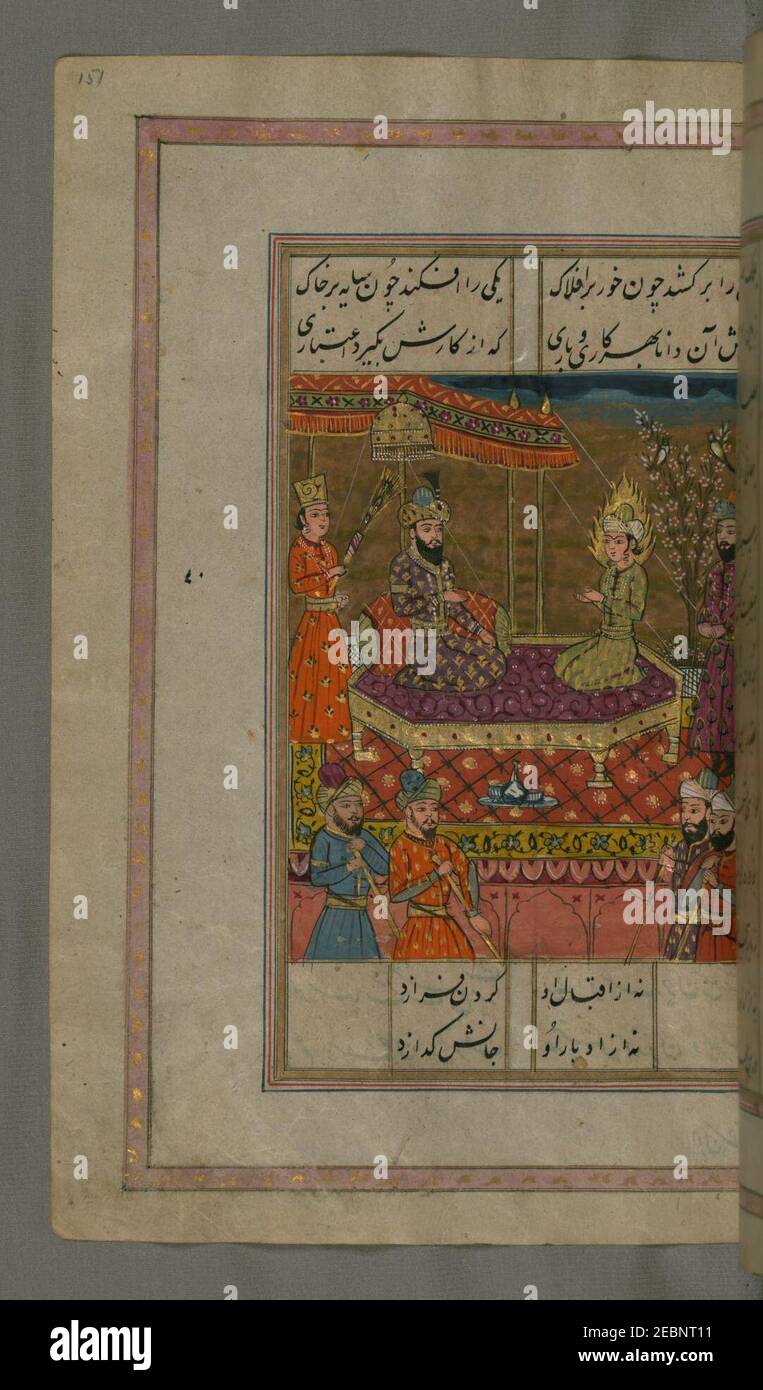 151
را برکشد چون خور بر افلاک یکی را افکند چون سایه بر خاک
آن دانا بهر کاری و باری که از کارش بگیرد اعتباری
نه از اقبال او گردن فرازد
نه از ادبار او جانش گدازد
alamy
Image ID: 2EBNT11
www.alamy.com